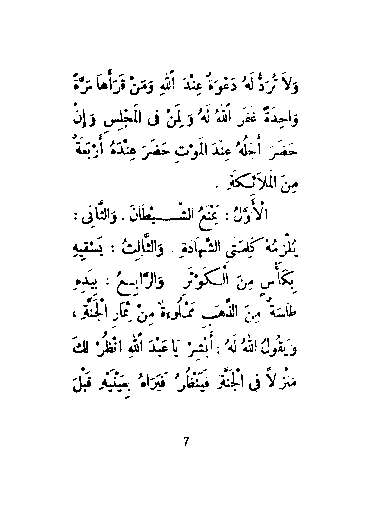 وَلاَ تُرَدُّ لَهُ دَعْوَةٌ عِنْدَ اللهِ وَمَنْ قَرَأَهَا مَرَّةً
وَاحِدَةً غَفَرَ اللهُ لَهُ وَلِمَنْ فِى الْمَجْلِسِ وَإِنْ
حَضَرَ أَجَلُهُ عِنْدَ الْمَوْتِ حَضَرَ عِنْدَهُ أَرْبَعَةٌ
مِنَ الْمَلاَئِكَةِ .
الْأَوَّلُ : يَمْنَعُ الشَّيْطَانَ . وَالثَّانِى :
يُلْزِمُهُ كَلِمَتَىِ الشَّهَادَةِ . وَالثَّالِثُ : يَسْقِيهِ
بِكَأْسٍ مِنَ الْكَوْثَرِ وَالرَّابِعُ : بِيَدِهِ
طَاسَةٌ مِنَ الذَّهَبِ مَمْلُوءَةٌ مِنْ ثِمَارِ الْجَنَّةِ ،
وَيَقُولُ اللهُ لَهُ : أَبْشِرْ يَا عَبْدَ اللهِ انْظُرْ لَكَ
مَنْزِلاً فِى الْجَنَّةِ فَيَنْظُرُ فَيَرَاهُ بِعَيْنَيْهِ قَبْلَ
7